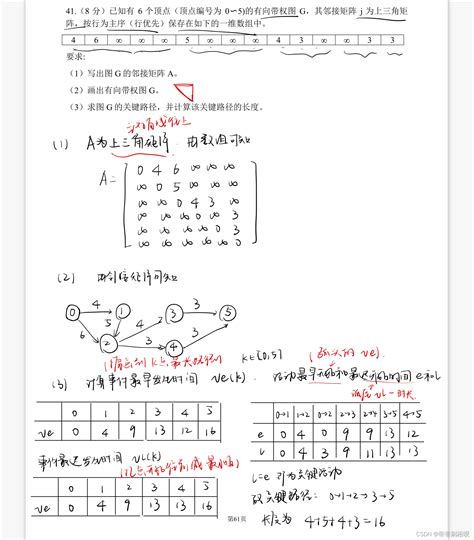 41.（8 分）已知有 6 个顶点（顶点编号为 0~5)的有向带权图 G，其邻接矩阵 j 为上三角矩
阵，按行为主序（行优先）保存在如下的一维数组中。
4 6 ∞ ∞ ∞ 5 ∞ ∞ ∞ 4 3 ∞ ∞ 3 3
要求:
（1）写出图 G 的邻接矩阵 A。
（2）画出有向带权图 G。
（3）求图 G 的关键路径，并计算该关键路径的长度。
(1) A为上三角矩阵 由数组可知
A=
0 4 6 ∞ ∞ ∞
∞ 0 5 ∞ ∞ ∞
∞ ∞ 0 4 3 ∞
∞ ∞ ∞ 0 ∞ 3
∞ ∞ ∞ ∞ 0 3
∞ ∞ ∞ ∞ ∞ 0
(2) 由邻接矩阵可知
0 4 1 3 3 5
6 5 2 4 3 4 3
k∈[0,5]
(3) 计算事件最早发生时间 ve(k). 活动最早开始和最迟开始的时间 e和l
0 1 2 3 4 5
ve 0 4 9 13 12 16
事件最迟发生时间 vl(k)
0 1 2 3 4 5
ve 0 4 9 13 13 16
0→1 1→2 0→2 2→3 2→4 3→5 4→5
e 0 4 0 9 9 13 12
l 0 4 3 9 11 13 13
l=e 即为关键活动
故关键路径: 0→1→2→3→5
长度为 4+5+4+3=16
第61页